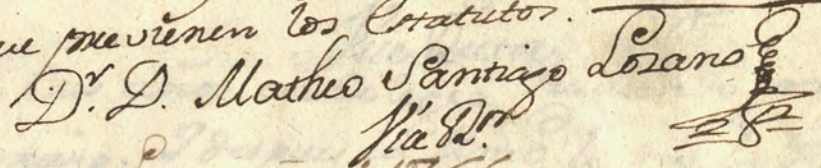 ue previenen los Estatutos.
Dr. D. Matheo Santiago Lozano